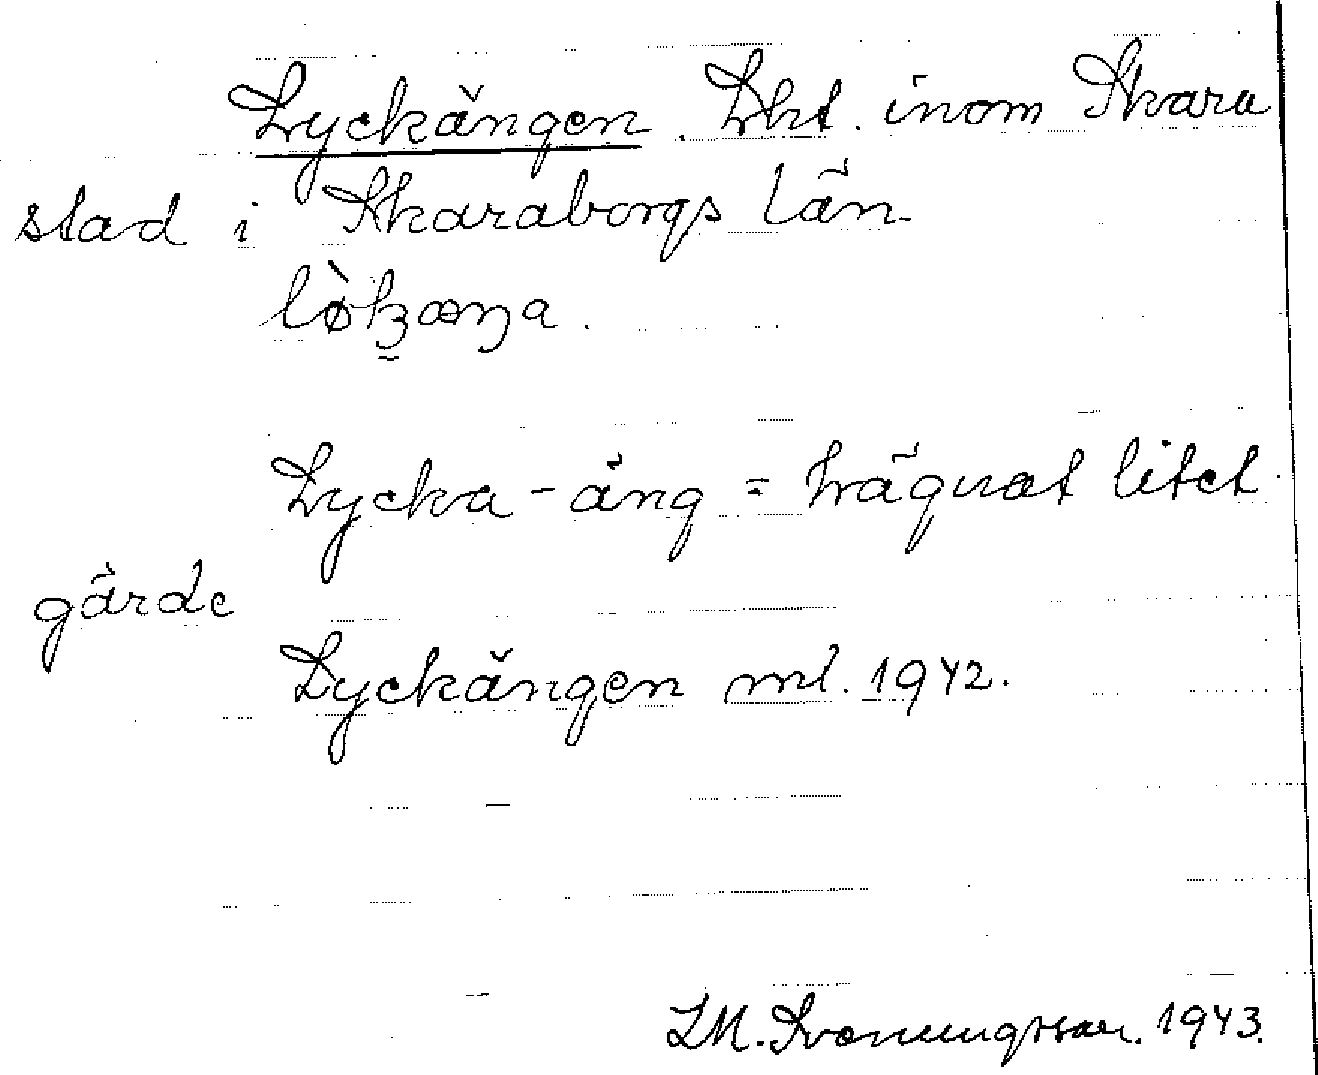 Lyckängen. Lht. inom Skara
stad i Skaraborgs län
lø̀kæŋa.
Lycka - äng = trägnat litet
gärde
Lyckängen ml. 1942.
J.M. Svenningsson. 1943.